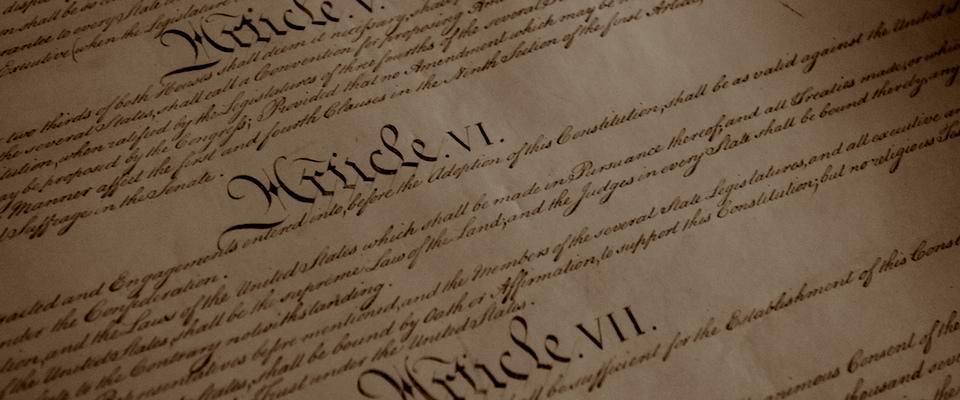 Article. V.
two thirds of both Houses shall deem it necessary, shall propose
the several States, shall call a Convention for proposing Amendments
, when ratified by the Legislatures of three fourths of the several States
be proposed by the Congress; Provided that no Amendment which may be
Manner affect the first and fourth Clauses in the Ninth Section of the first Article;
Suffrage in the Senate.
Article. VI.
and Engagements entered into, before the Adoption of this Constitution, shall be as valid against the United
under the Confederation.
and the Laws of the United States which shall be made in Pursuance thereof; and all Treaties made, or which
the United States, shall be the supreme Law of the Land; and the Judges in every State shall be bound thereby, any
to the Contrary notwithstanding.
Representatives before mentioned, and the Members of the several State Legislatures, and all executive
States, shall be bound by Oath or Affirmation, to support this Constitution; but no religious Test
Trust under the United States.
Article. VII.
shall be sufficient for the Establishment of this
Consent of the
thousand